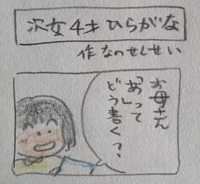 次女4才ひらがな
作なのせしせい
お母さん
「あ」って
どう書く?